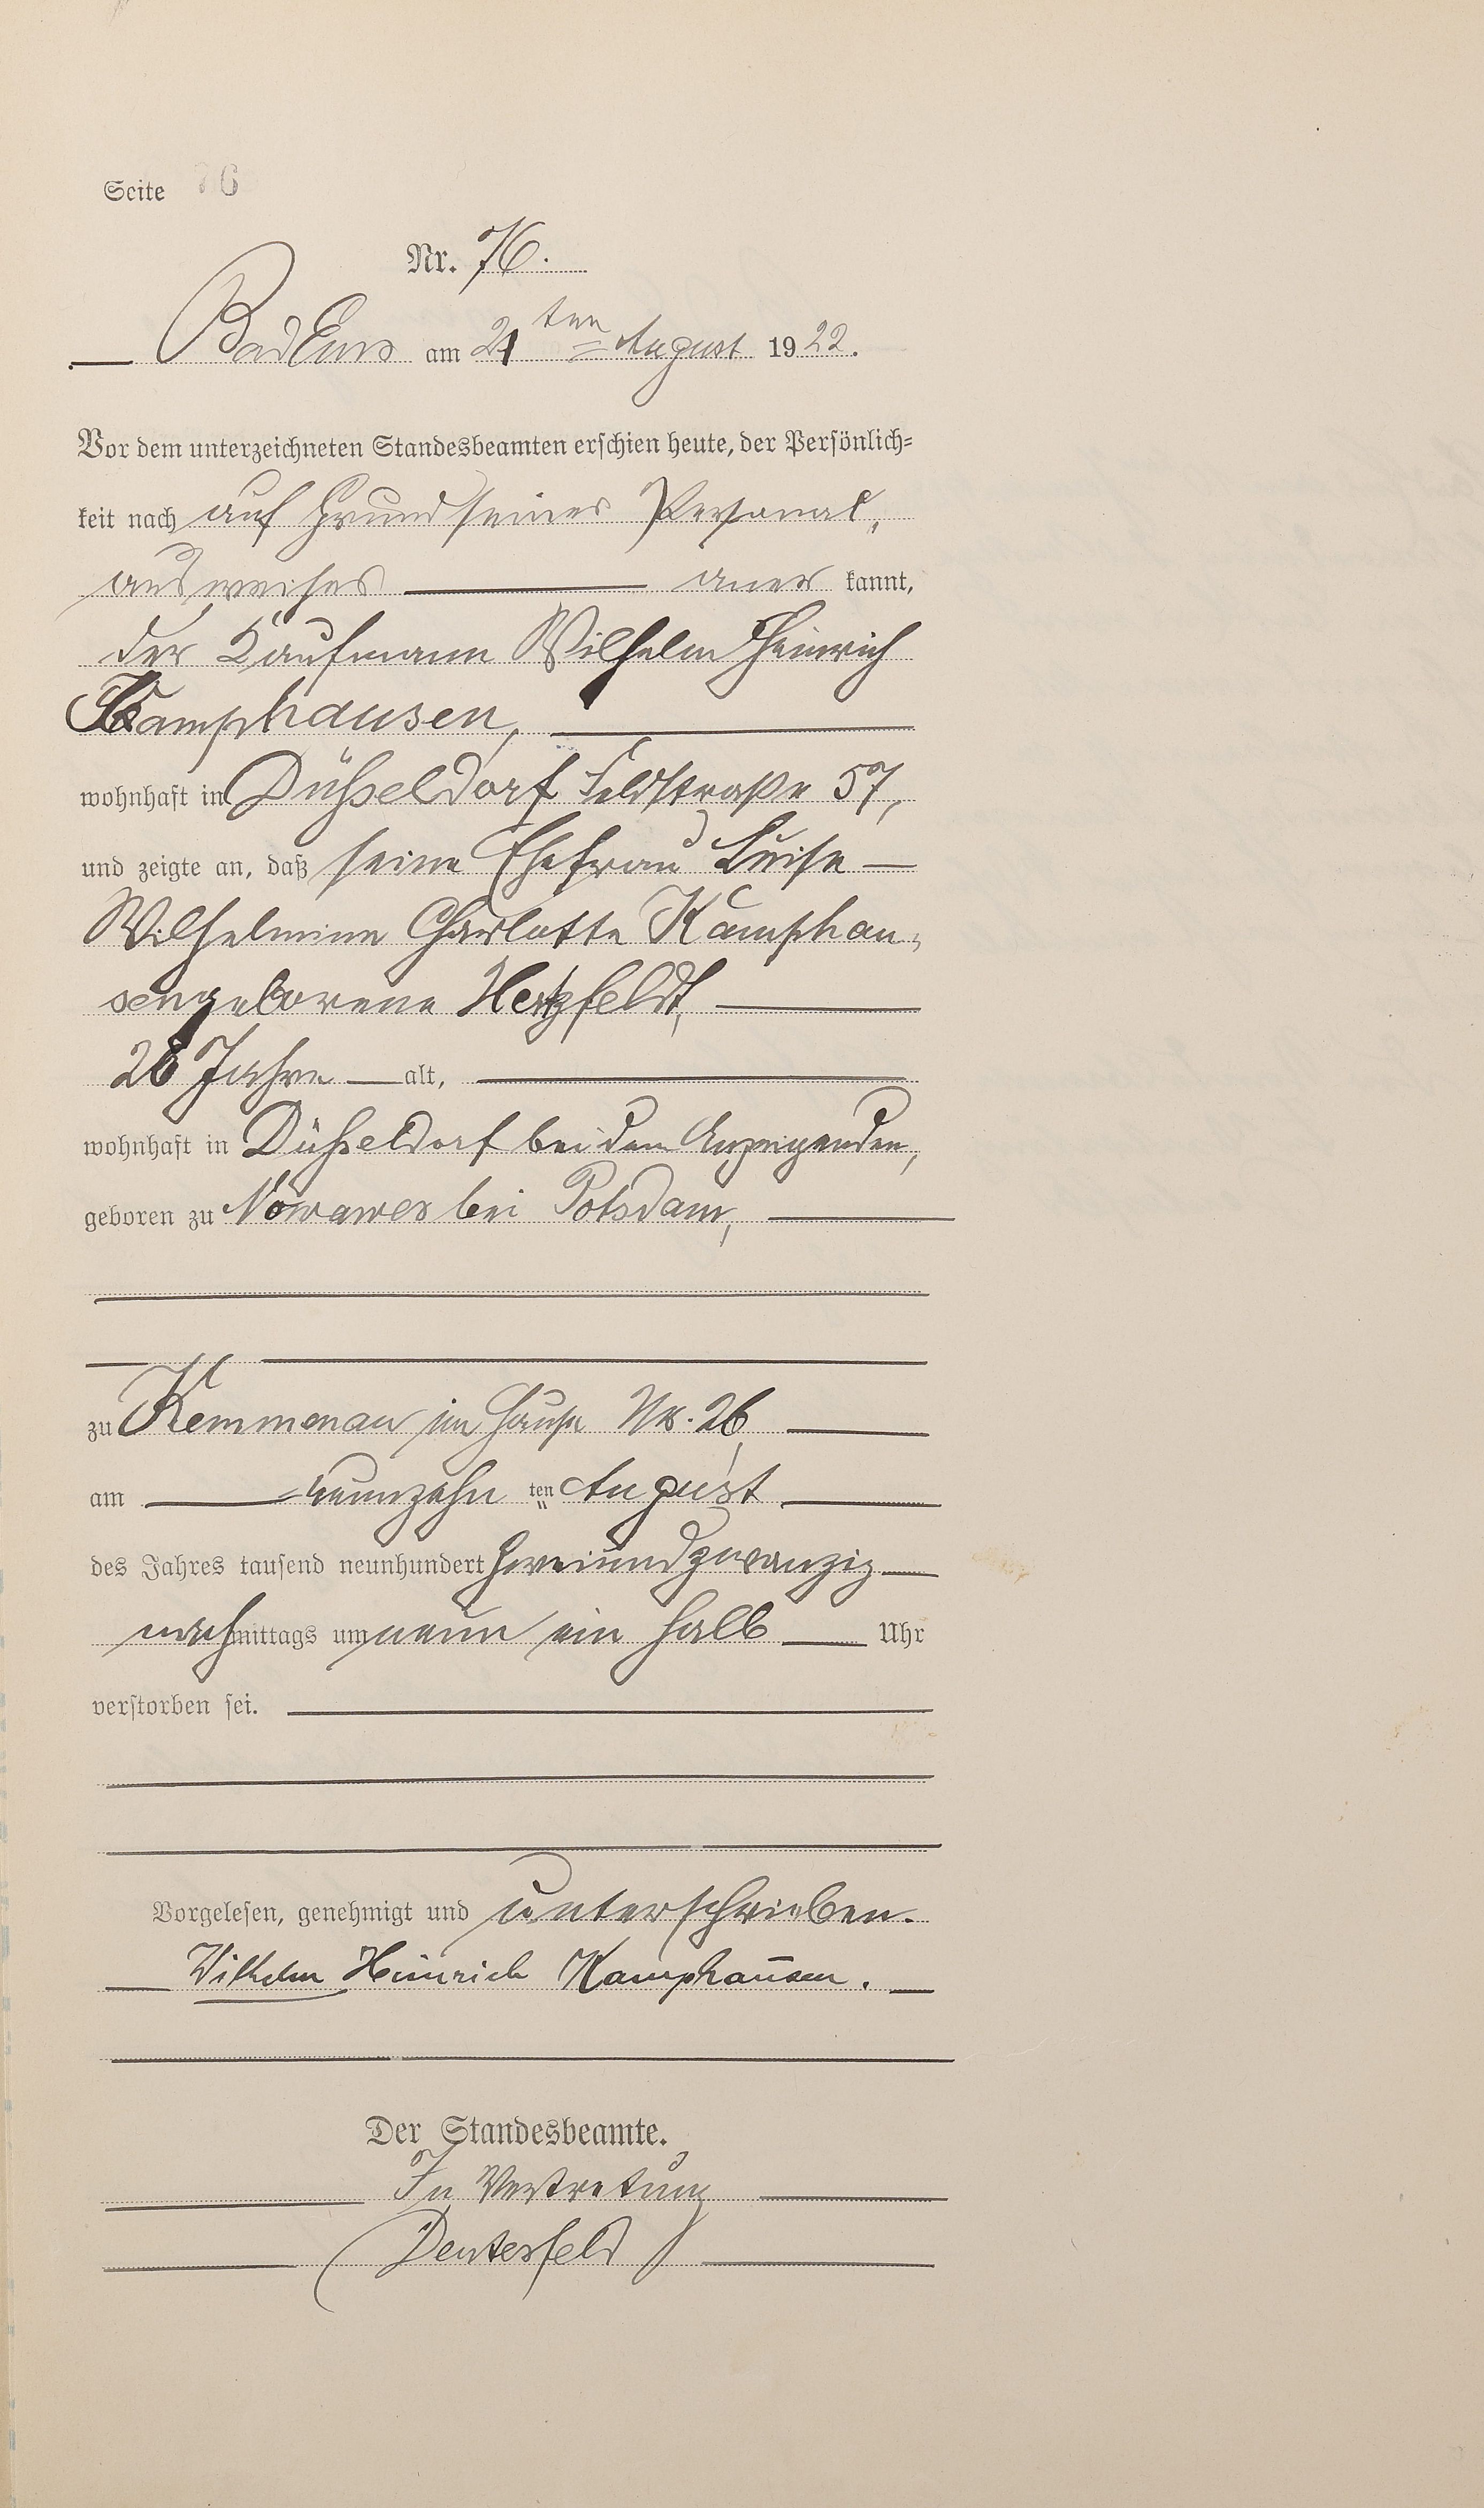 Seite 76
Nr. 76.
Bad Ems am 21ten August 1922.
Vor dem unterzeichneten Standesbeamten erschien heute, der Persönlich-
keit nach auf Grund seines Personal-
ausweises aner kannt,
der Kaufmann Wilhelm Heinrich
Kamphausen,
wohnhaft in Düsseldorf Feldstraße 57,
und zeigte an, daß seine Ehefrau Luise
Wilhelmine Charlotte Kamphau-
sen geborene Hertzfeldt,
28 Jahre alt,
wohnhaft in Düsseldorf bei dem Anzeigenden,
geboren zu Nowawes bei Potsdam,
zu Kemmenau im Hause Nr. 26,
am neunzehn ten August
des Jahres tausend neunhundert zweiundzwanzig
nachmittags um neun ein halb Uhr
verstorben sei.
Vorgelesen, genehmigt und unterschrieben.
Wilhelm Heinrich Kamphausen.
Der Standesbeamte.
In Vertretung